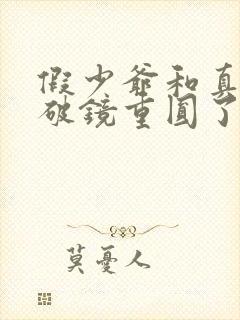 假少爺和真
破鏡重圓了
莫憂人